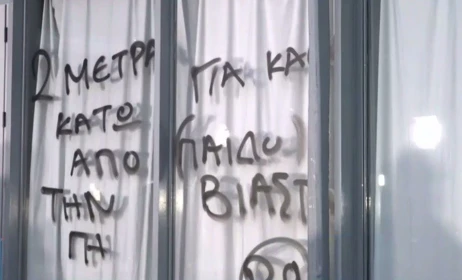 2 ΜΕΤΡΑ
ΚΑΤΩ
ΑΠΟ
ΤΗΝ
ΓΗ
ΓΙΑ ΚΑ
(ΠΑΙΔΟ)
ΒΙΑΣΤ